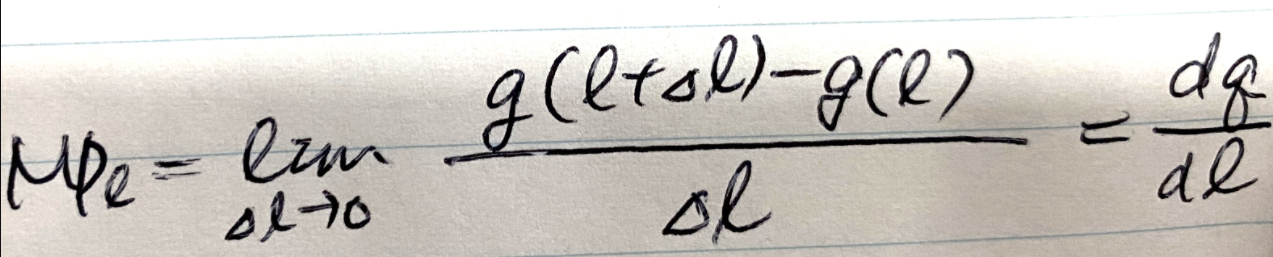 MP_ℓ = lim_{Δℓ→0} \frac{g(ℓ+Δℓ)-g(ℓ)}{Δℓ} = \frac{dg}{dℓ}